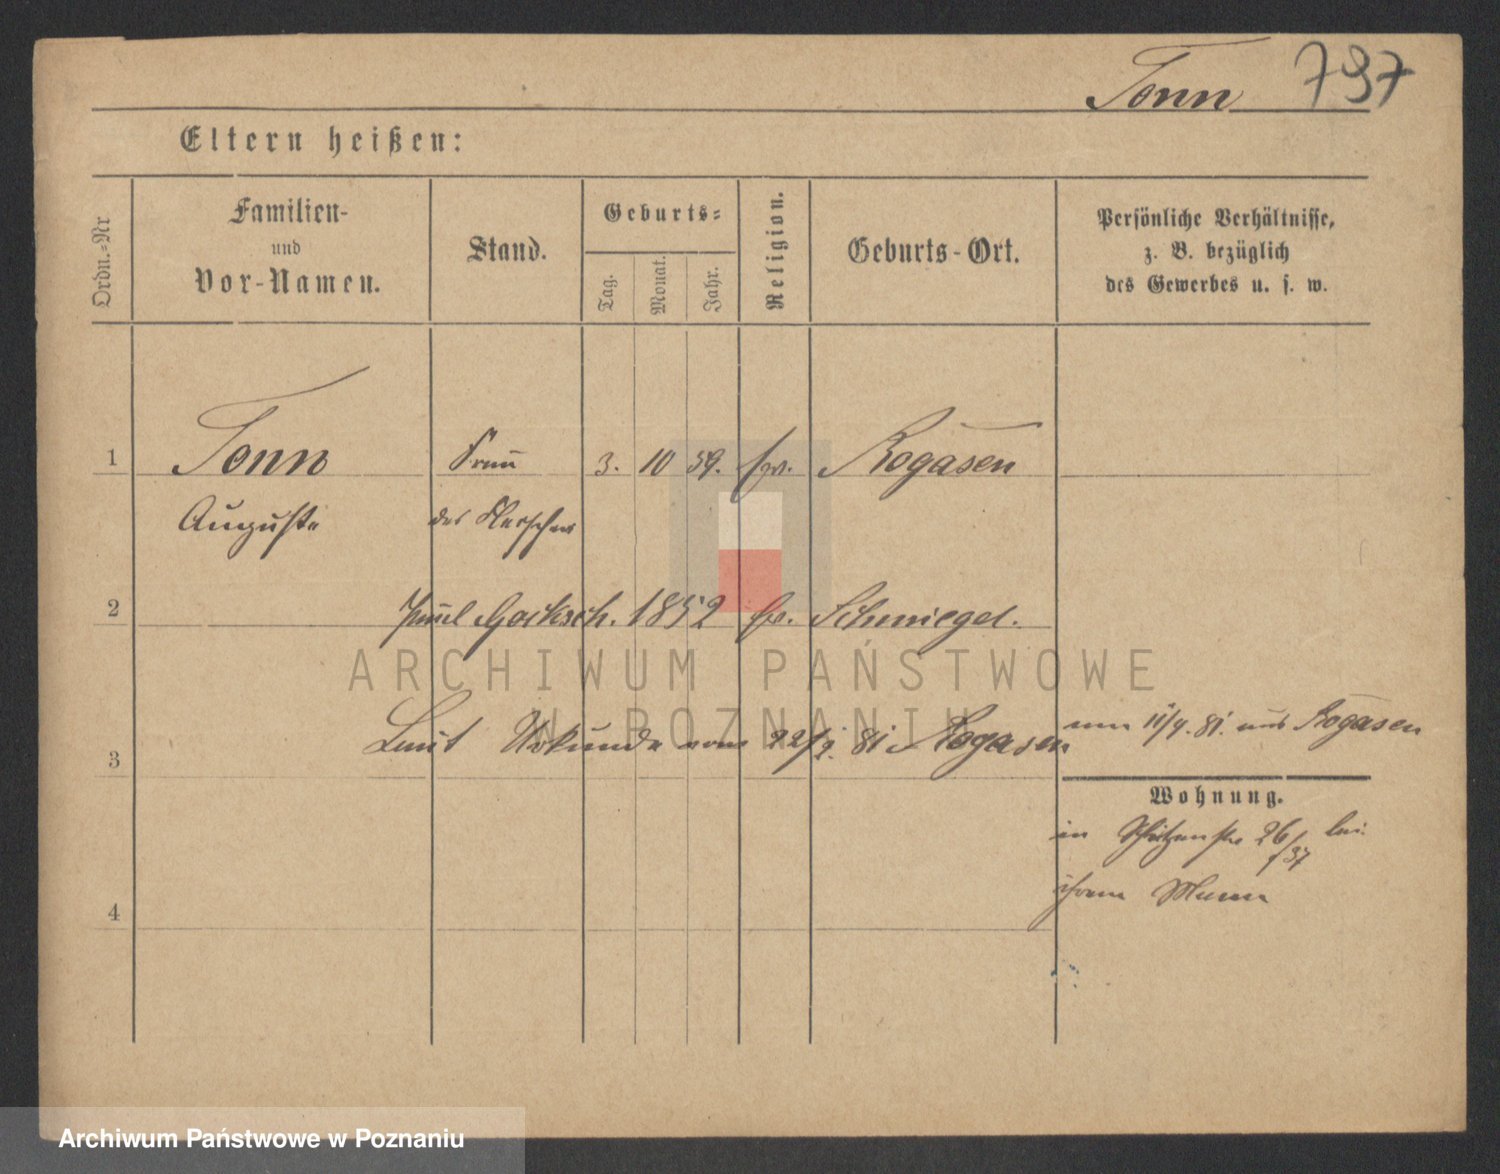 Tonn 797
Eltern heißen:
Ordn.=Nr
Familien-
und
Vor-Namen.
Stand.
Geburts=
Tag.
Monat.
Jahr.
Religion.
Geburts-Ort.
Persönliche Verhältnisse,
z. B. bezüglich
des Gewerbes u. s. w.
1 Tonn Frau 3. 10 59. ev. Rogasen
Auguste des
2 Paul 1852 ev. Schmiegel.
ARCHIWUM PAŃSTWOWE
W POZNANIU
3 Laut Urkunde vom 22/9. 81 Rogasen
am 11/9. 81. aus Rogasen
Wohnung.
in Schützenstr 26/37 bei
ihrem Mann
4
Archiwum Państwowe w Poznaniu